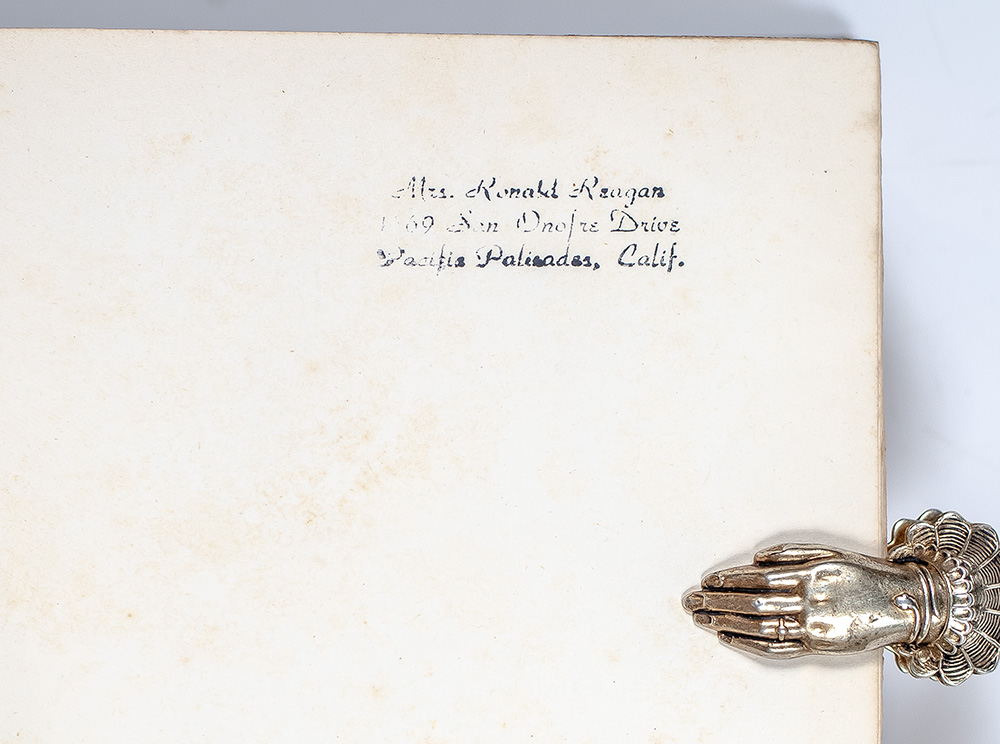 Mrs. Ronald Reagan
San Onofre Drive
Pacific Palisades, Calif.